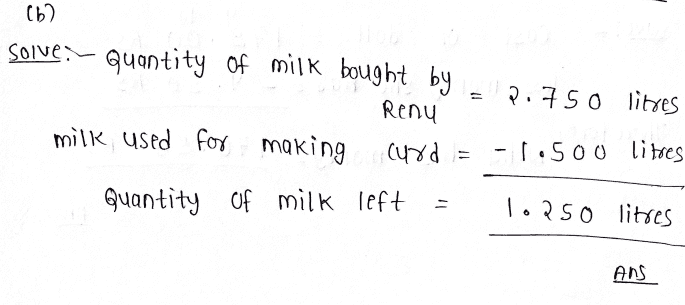 (b)
Solve:- Quantity of milk bought by Renu = 2.750 litres
milk used for making curd = -1.500 litres
Quantity of milk left = 1.250 litres
Ans